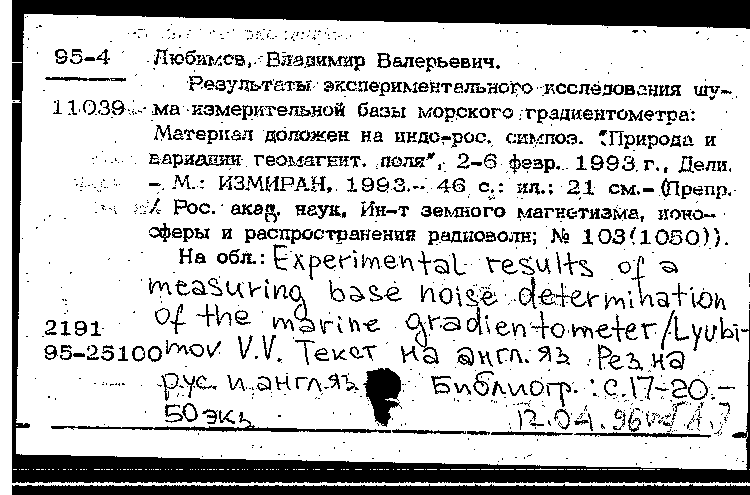 95-4 Любимов, Владимир Валерьевич.
Результаты экспериментального исследования шу-
11039 ма измерительной базы морского градиентометра:
Материал доложен на индо-рос. симпоз. "Природа и
вариации геомагнит. поля", 2-6 февр. 1993 г., Дели.
- М.: ИЗМИРАН, 1993.- 46 с.: ил.; 21 см.- (Препр.
/ Рос. акад. наук, Ин-т земного магнетизма, ионо-
сферы и распространения радиоволн; № 103(1050)).
На обл.: Experimental results of a
measuring base noise determination
2191 of the marine gradientometer/Lyubi-
95-25100 mov V.V. Текст на англ. яз. Рез на
рус. и англ. яз. Библиогр.: с. 17-20.-
50 экз 12.04.96